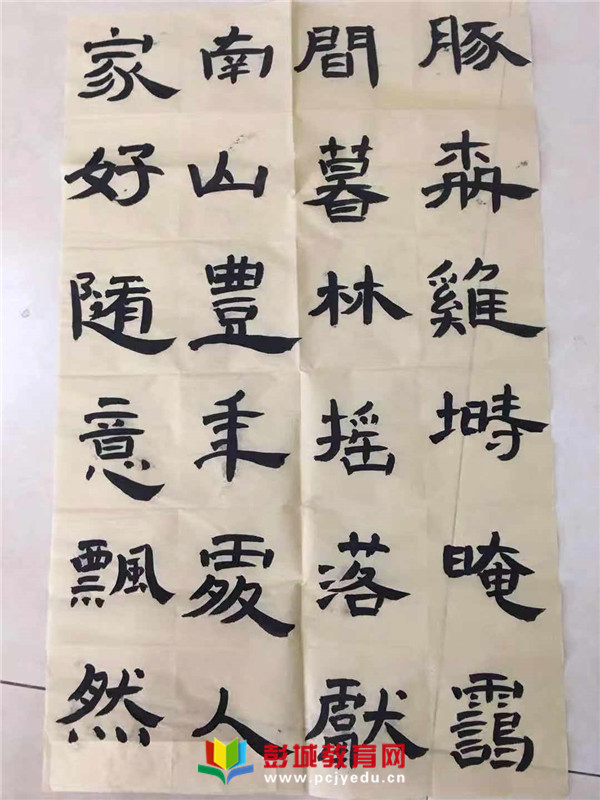 豚柵雞塒晻靄
間暮林摇落獻
南山豐年處人
家好隨意飄然
彭城教育网
www.pcjyedu.cn